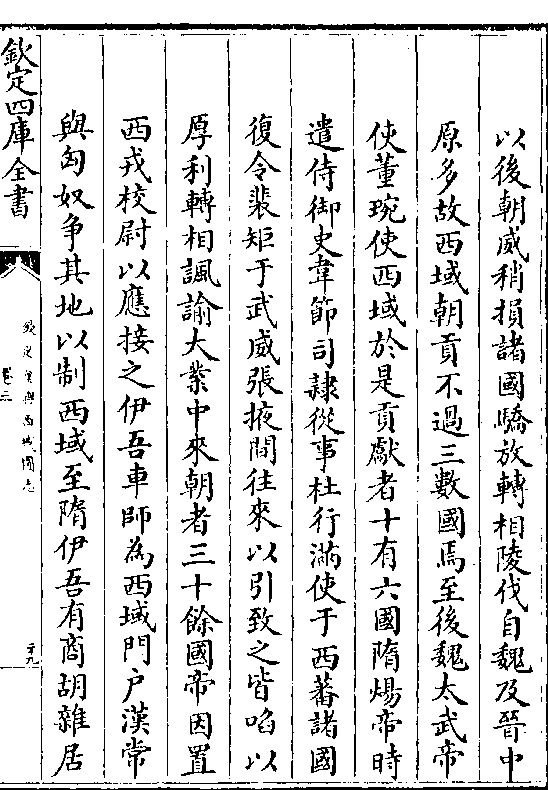 以後朝威稍損諸國驕放轉相陵伐自魏及晉中
原多故西域朝貢不過三數國焉至後魏太武帝
使董琬使西域於是貢獻者十有六國隋煬帝時
遣侍御史韋節司隸從事杜行滿使于西蕃諸國
復令裴矩于武威張掖間往來以引致之皆啗以
厚利轉相諷諭大業中來朝者三十餘國帝因置
西戎校尉以應接之伊吾車師為西域門户漢常
與匈奴爭其地以制西域至隋伊吾有商胡雜居
欽定四庫全書
欽定皇輿西域圖志
卷三
二十九